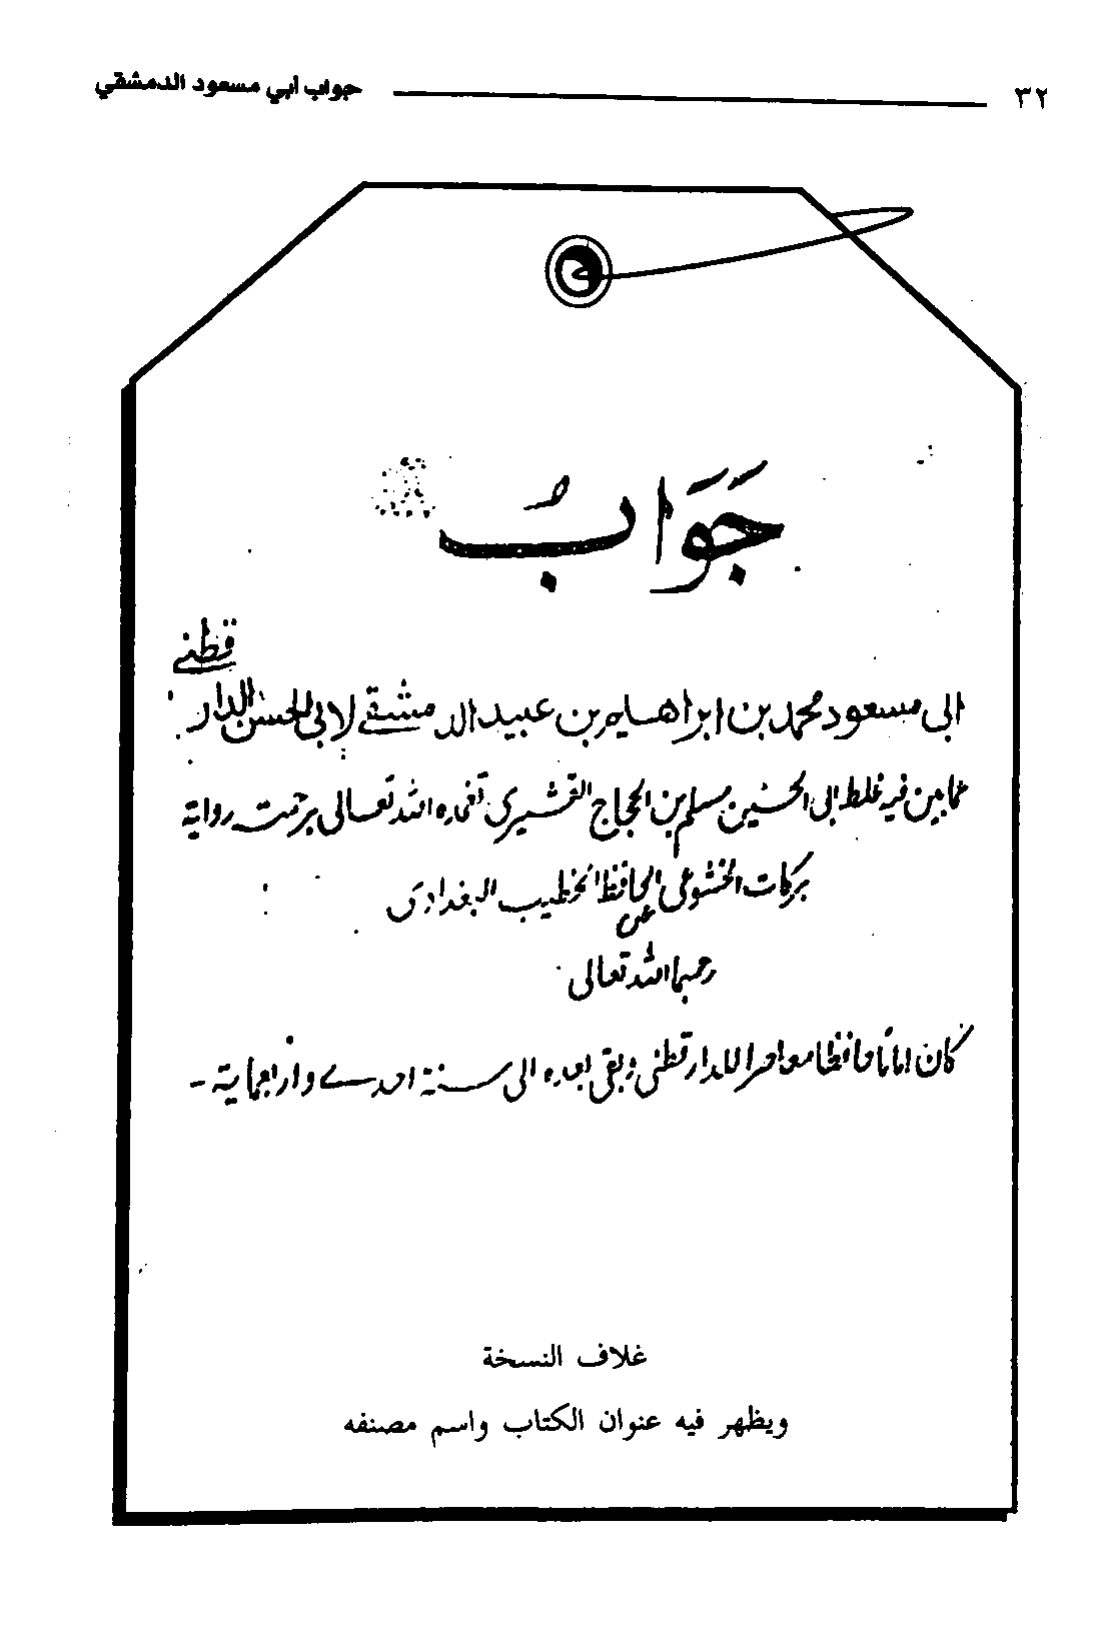 ٣٢ جواب أبي مسعود الدمشقي
جَوَابُ
ابى مسعود محمد بن ابراهيم بن عبيد الدمشقي لابى الحسن الدارقطني
عما بين فيه غلط ابى الحسين مسلم بن الحجاج القشيرى تغمده الله تعالى برحمته رواية
بركات الخشوعى عن الحافظ الخطيب البغدادى
رحمهما الله تعالى
كان اماما حافظا معاصرا للدارقطنى وبقى بعده الى سنة احدى واربعماية -
غلاف النسخة
ويظهر فيه عنوان الكتاب واسم مصنفه